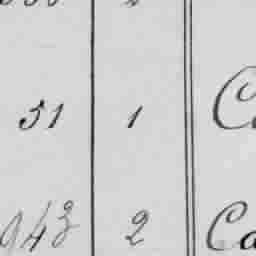 51 1
943 2 Ca